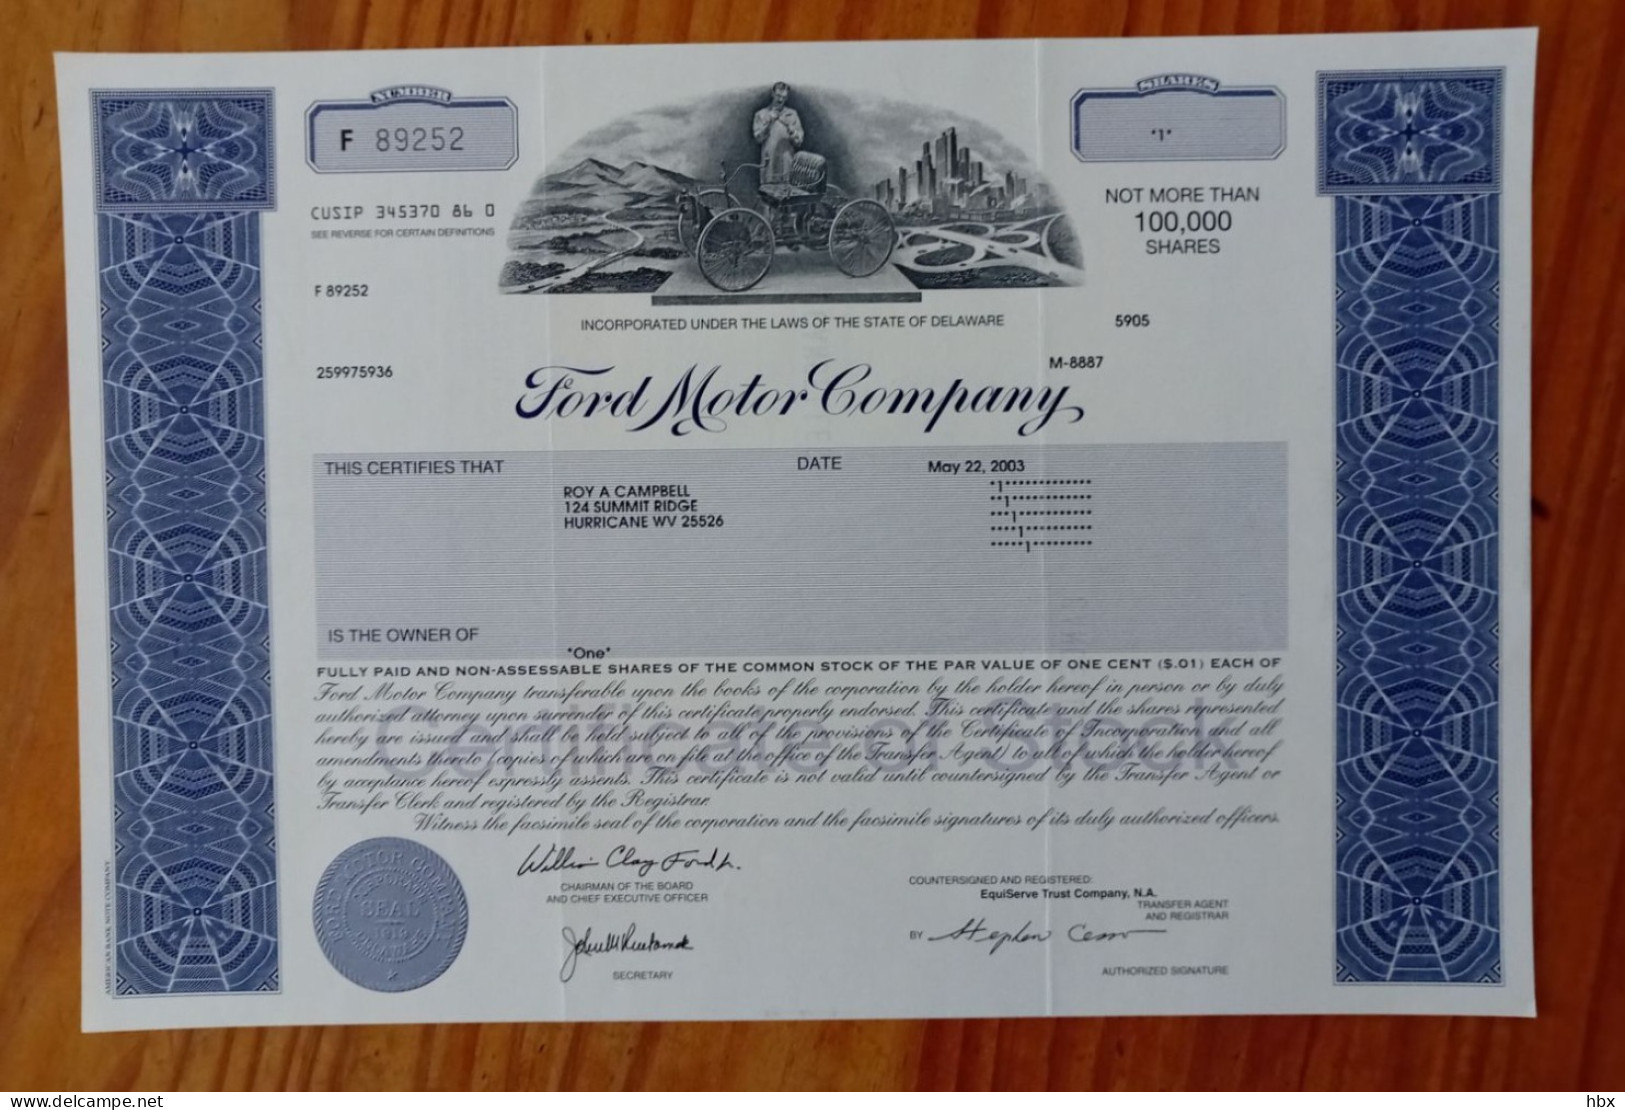 NUMBER
F 89252
SHARES
*1*
CUSIP 345370 86 0
SEE REVERSE FOR CERTAIN DEFINITIONS
NOT MORE THAN
100,000
SHARES
F 89252
INCORPORATED UNDER THE LAWS OF THE STATE OF DELAWARE
5905
259975936
M-8887
Ford Motor Company
THIS CERTIFIES THAT
DATE
May 22, 2003
ROY A CAMPBELL
124 SUMMIT RIDGE
HURRICANE WV 25526
*1************
**1***********
***1**********
****1*********
*****1*********
IS THE OWNER OF
*One*
FULLY PAID AND NON-ASSESSABLE SHARES OF THE COMMON STOCK OF THE PAR VALUE OF ONE CENT ($.01) EACH OF
Ford Motor Company transferable upon the books of the corporation by the holder hereof in person or by duly
authorized attorney upon surrender of this certificate properly endorsed. This certificate and the shares represented
hereby are issued and shall be held subject to all of the provisions of the Certificate of Incorporation and all
amendments thereto (copies of which are on file at the office of the Transfer Agent) to all of which the holder hereof
by acceptance hereof expressly assents. This certificate is not valid until countersigned by the Transfer Agent or
Transfer Clerk and registered by the Registrar.
Witness the facsimile seal of the corporation and the facsimile signatures of its duly authorized officers.
Certificate of Stock
FORD MOTOR COMPANY
INCORPORATED
SEAL
1919
DELAWARE
William Clay Ford Jr.
CHAIRMAN OF THE BOARD
AND CHIEF EXECUTIVE OFFICER
SECRETARY
COUNTERSIGNED AND REGISTERED:
EquiServe Trust Company, N.A.
TRANSFER AGENT
AND REGISTRAR
BY Stephen
AUTHORIZED SIGNATURE
AMERICAN BANK NOTE COMPANY
www.delcampe.net
hbx